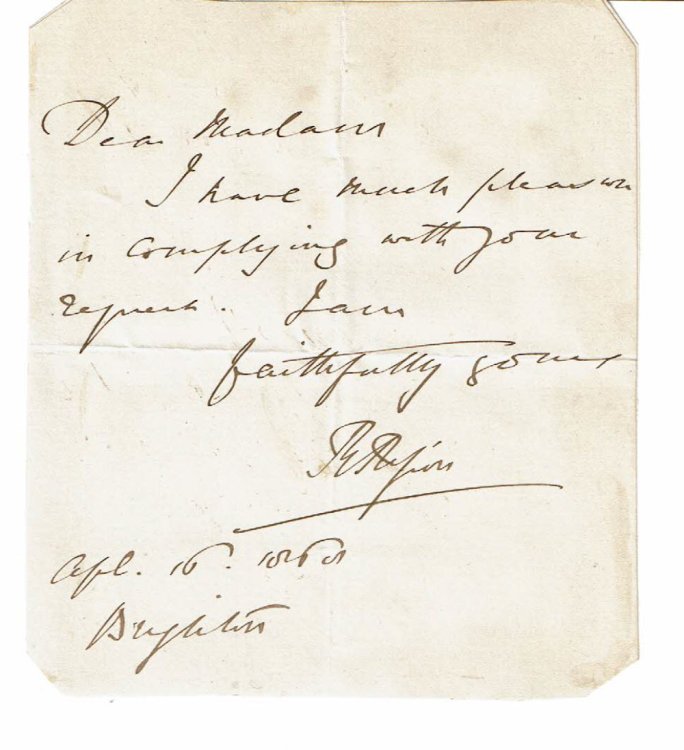 Dear Madam
I have much pleasure
in complying with your
request. I am
faithfully yours
Apl. 16.
Brighton